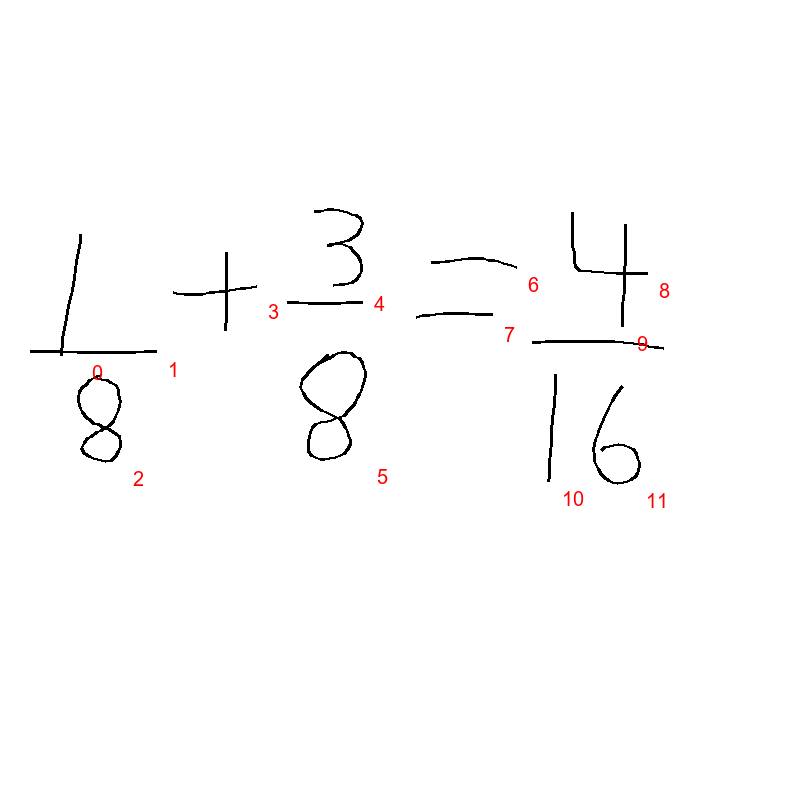 1/8 + 3/8 = 4/16
0 1 2 3 4 5 6 7 8 9 10 11